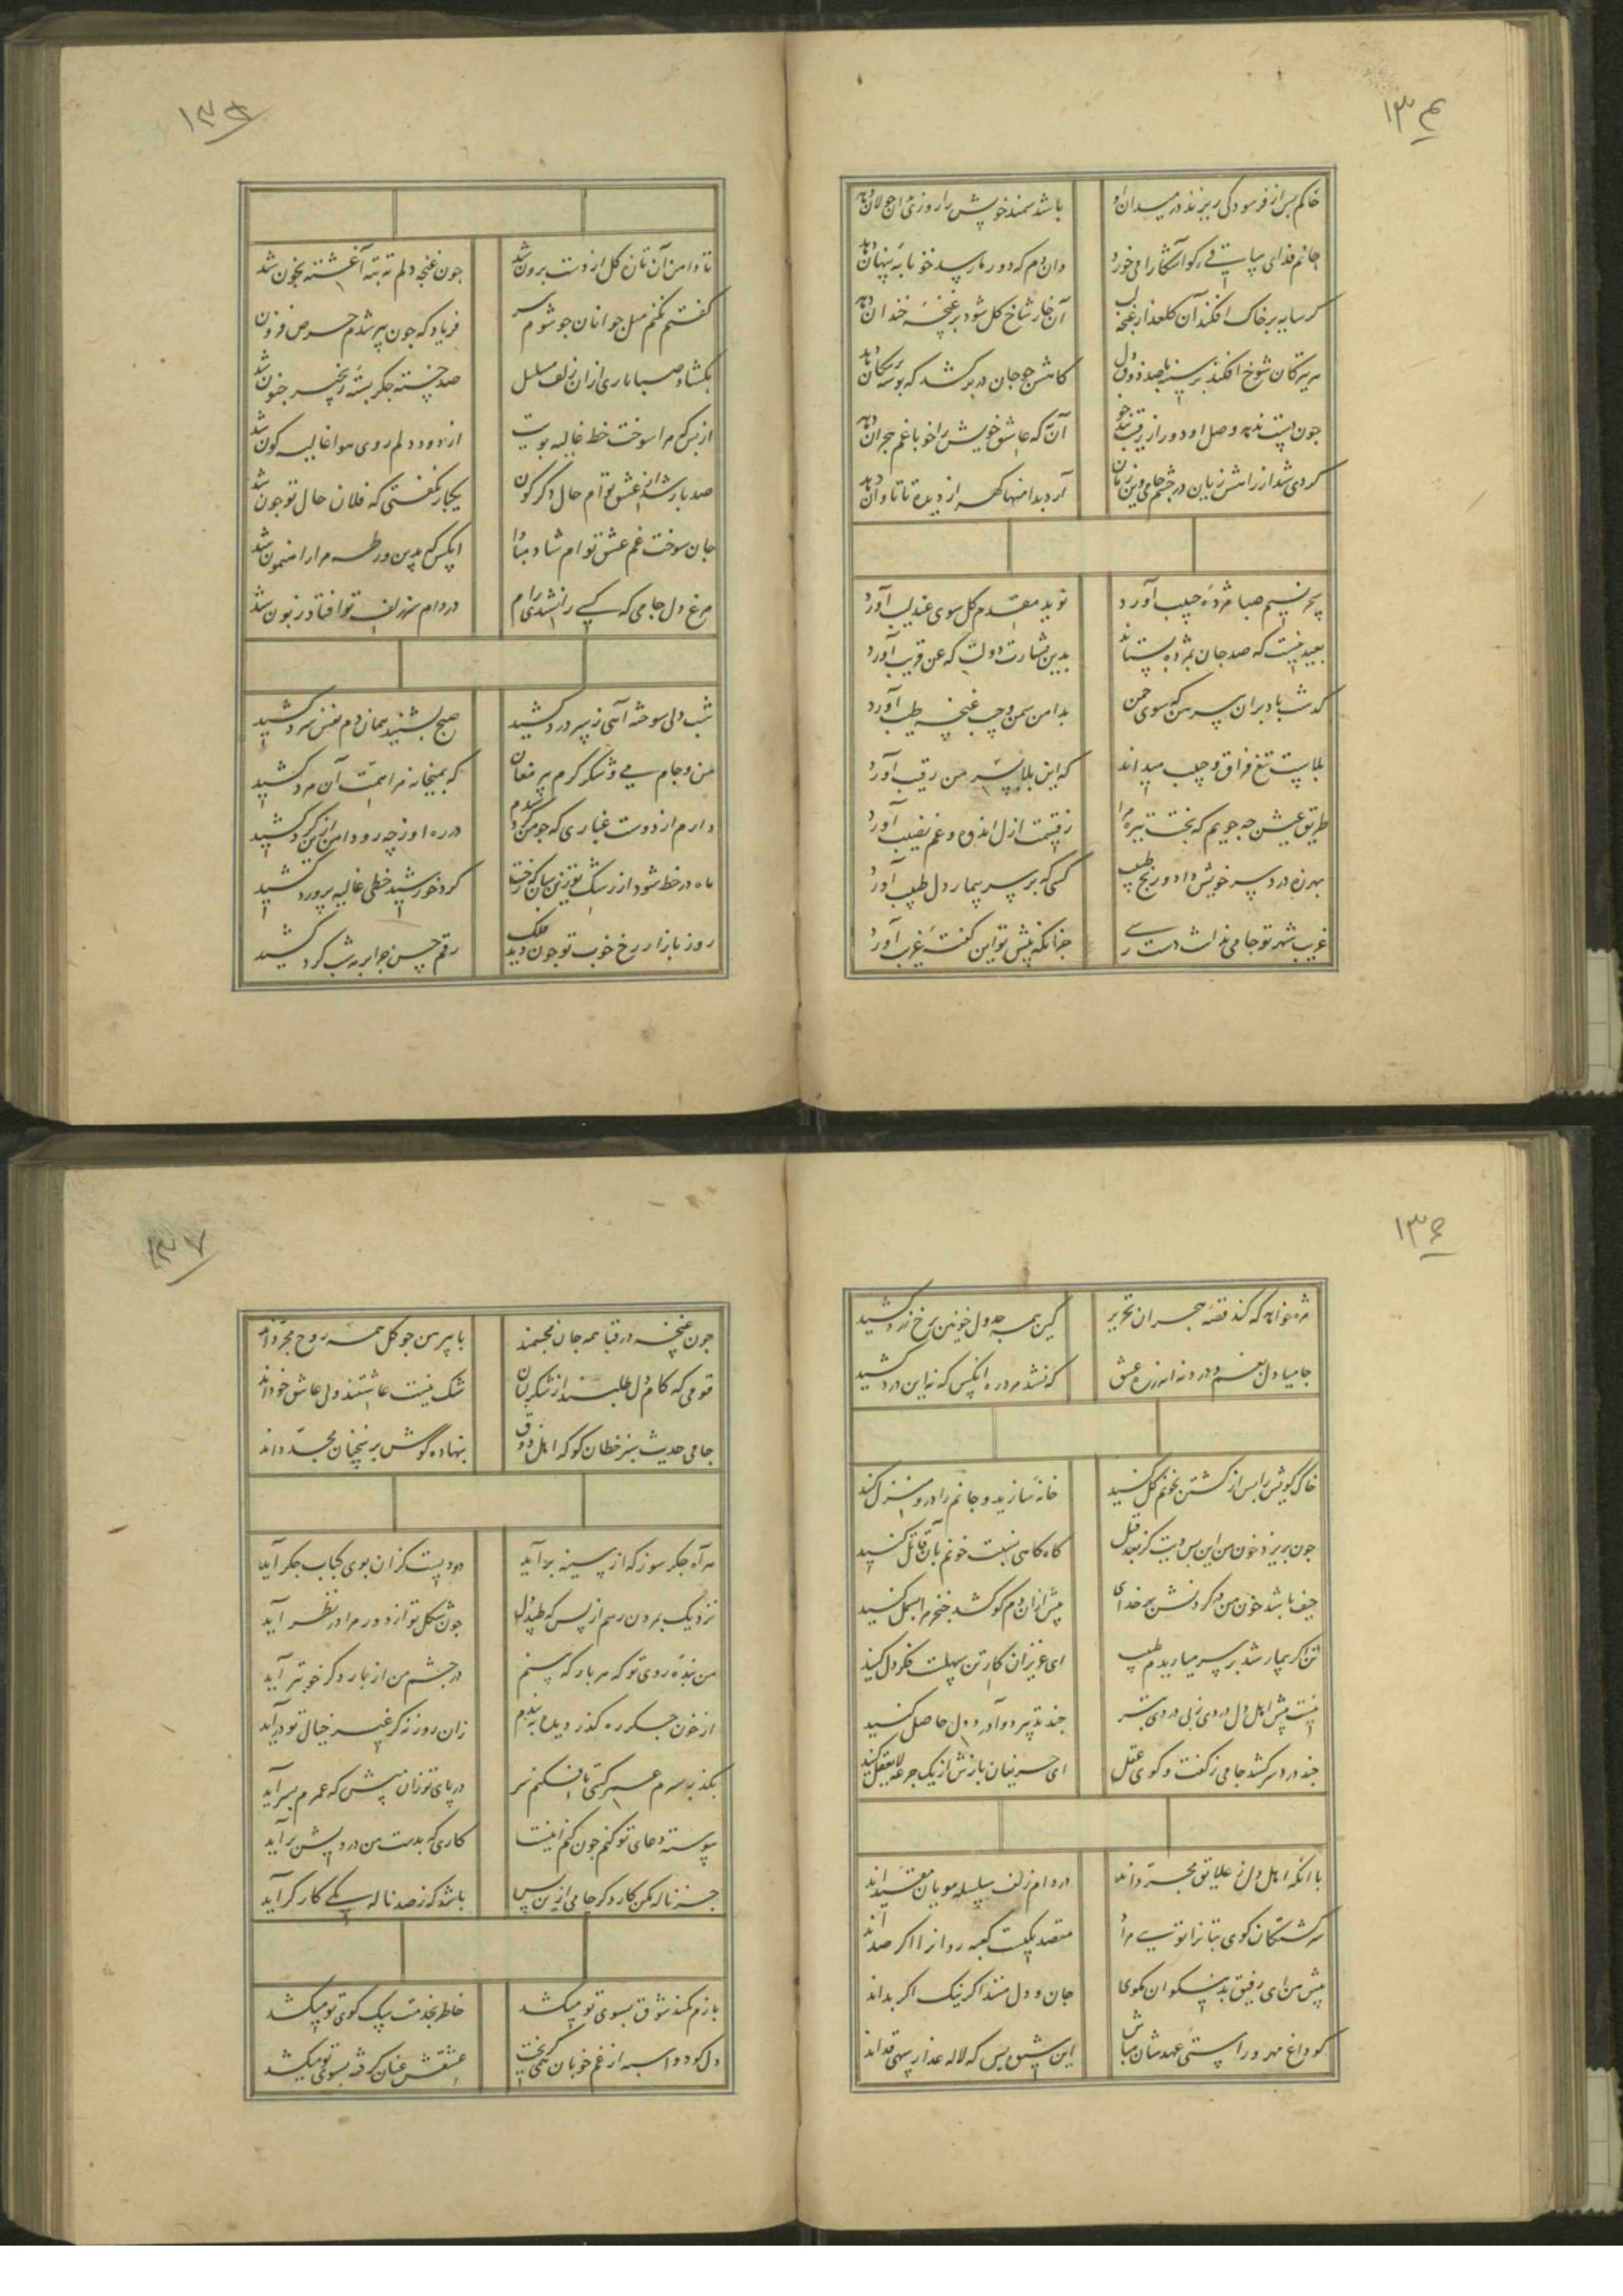 ١٣٤
خاکم پس از فرسودکی ریزند در میدان او
باشد سمند خویش را روزی بران جولان دهد
جانم فدای ساقیی کو آشکارا می خورد
وان دم که دور ما رسد خونابه پنهان دهد
کر سایه بر خاک افکند آن کلعذار غنچه لب
آن خار شاخ کل شود بر غنچه خندان دهد
هر تیر کان شوخ افکند بر سینه با صد ذوق دل
کامش جو جان در بر کشد که بوسه بر پیکان دهد
جون نیست ندهد وصل او دور از رقیب تندخو
آن که عاشق خویش را خو با غم هجران دهد
کردی شد از راهش زیان در چشم جامی وین زمان
آرد بدامنها کهر از دیده تا تاوان دهد
سحر نسیم صبا مژده حبیب آورد
نوید مقدم کل سوی عندلیب آورد
بعید نیست که صد جان بمژده بستاند
بدین بشارت دولت که عن قریب آورد
کذشت باد بران پیرهن که سوی چمن
بدامن سمن و جیب غنچه طیب آورد
بلاست تیغ فراق و حبیب میداند
که این بلا بسر من رقیب آورد
طریق عیش چه جویم که بخت تیره مرا
ز قسمت ازل اندوه و غم نصیب آورد
بهرزه دردسر خویش داد و رنج طبیب
کسی که بر سر بیمار دل طبیب آورد
غریب شهر تو جامی نداشت دست رسی
جز انکه پیش تو این کفته غریب آورد
١٣٥
تا دامن آن تازه کل از دست برون شد
جون غنچه دلم ته بته آغشته بخون شد
کفتم نکنم میل جوانان جو شوم پیر
فریاد که جون پیر شدم حرص فزون شد
بکشاد صبا تاری ازان زلف مسلسل
صد خسته جکر بسته زنجیر جنون شد
از بس که مرا سوخت خط غالیه بویت
از دود دلم روی هوا غالیه کون شد
صد بار شد از عشق توام حال دکرکون
یکبار نکفتی که فلان حال تو جون شد
جان سوخت غم عشق توام شاد مبادا
انکس که بدین ورطه مرا راهنمون شد
مرغ دل جامی که کسی را نشدی رام
در دام سر زلف تو افتاد و زبون شد
شب دلی سوخته آهی ز سر درد کشید
صبح بشنید همان دم نفس سرد کشید
من و جام می و شکر کرم پیر مغان
که بمیخانه مرا همت آن مرد کشید
دارم از دوست غباری که جو من کرد شدم
در ره او ز چه رو دامن ازین کرد کشید
ماه در خط شود از رشک تو زین سان که رخت
کرد خورشید خطی غالیه پرورد کشید
روز بازار رخ خوب تو جون دید ملک
رقم حسن جرا بر مه شب کرد کشید
١٣٦
مژه خواهد که کند قصه هجران تحریر
کین همه جدول خونین برخ زرد کشید
جامیا دل بغم و درد نه اندر ره عشق
که نشد مرد ره انکس که نه این درد کشید
خاک کویش را پس از کشتن بخونم کل کنید
خانه سازید و جانم را درو منزل کنید
جون بریزد خون من این بس دیت کز بعد قتل
کاه کاهی نسبت خونم بآن قاتل کنید
حیف باشد خون من در کردنش بهر خدای
پیش ازان دم کو کشد خنجر مرا بسمل کنید
تن اکر بیمار شد بر سر میاریدم طبیب
ای عزیزان کار تن سهلست فکر دل کنید
نیست پیش اهل دل دردی ز بی دردی بتر
چند تدبیر دوا درد دل حاصل کنید
چند درد سر کشد جامی ز کفت و کوی عقل
ای حریفان بازش از یک جرعه لایعقل کنید
با انکه اهل دل ز علایق مجرداند
در دام زلف سلسله مویان مقیداند
سرکشتکان کوی بتانرا توئی مراد
مقصد یکیست کعبه روانرا اکر صداند
پیش من ای رفیق بد نیکوان مکوی
جان و دل منند اکر نیک اکر بداند
کو داغ مهر و راستی عهدشان مباش
این شیوه بس که لاله عذار سهی قداند
١٣٧
جون غنچه در قبا همه جان مجسمند
با پیرهن جو کل همه روح مجرداند
قومی که کام دل طلبند از شکر لبان
شک نیست عاشقند ولی عاشق خوداند
جامی حدیث سبز خطان کو که اهل ذوق
بنهاده کوش بر سخنان مجدداند
هر آه جکر سوز که از سینه برآید
دودیست کزان بوی کباب جکر آید
نزدیک بمردن رسم از بس که طپد دل
جون شکل تو از دور مرا در نظر آید
من بنده روی تو که هر بار که بینم
در چشم من از بار دکر خوبتر آید
از خون جکر ره کذر دیده ببندم
زان روزنه کر غیر خیال تو درآید
بکذر بسرم عمر کمی تا فکنم سر
در پای تو زان پیش که عمرم بسر آید
پیوسته دعای تو کنم جون کنم اینست
کاری که بدست من درویش برآید
جز ناله مکن کار دکر جامی ازین پس
باشد که ز صد ناله یکی کارکر آید
بازم کمند شوق بسوی تو میکشد
خاطر بخدمت سک کوی تو میکشد
دل کو دو اسبه از غم خوبان کریخت
عشقش عنان کرفته بسوی تو میکشد